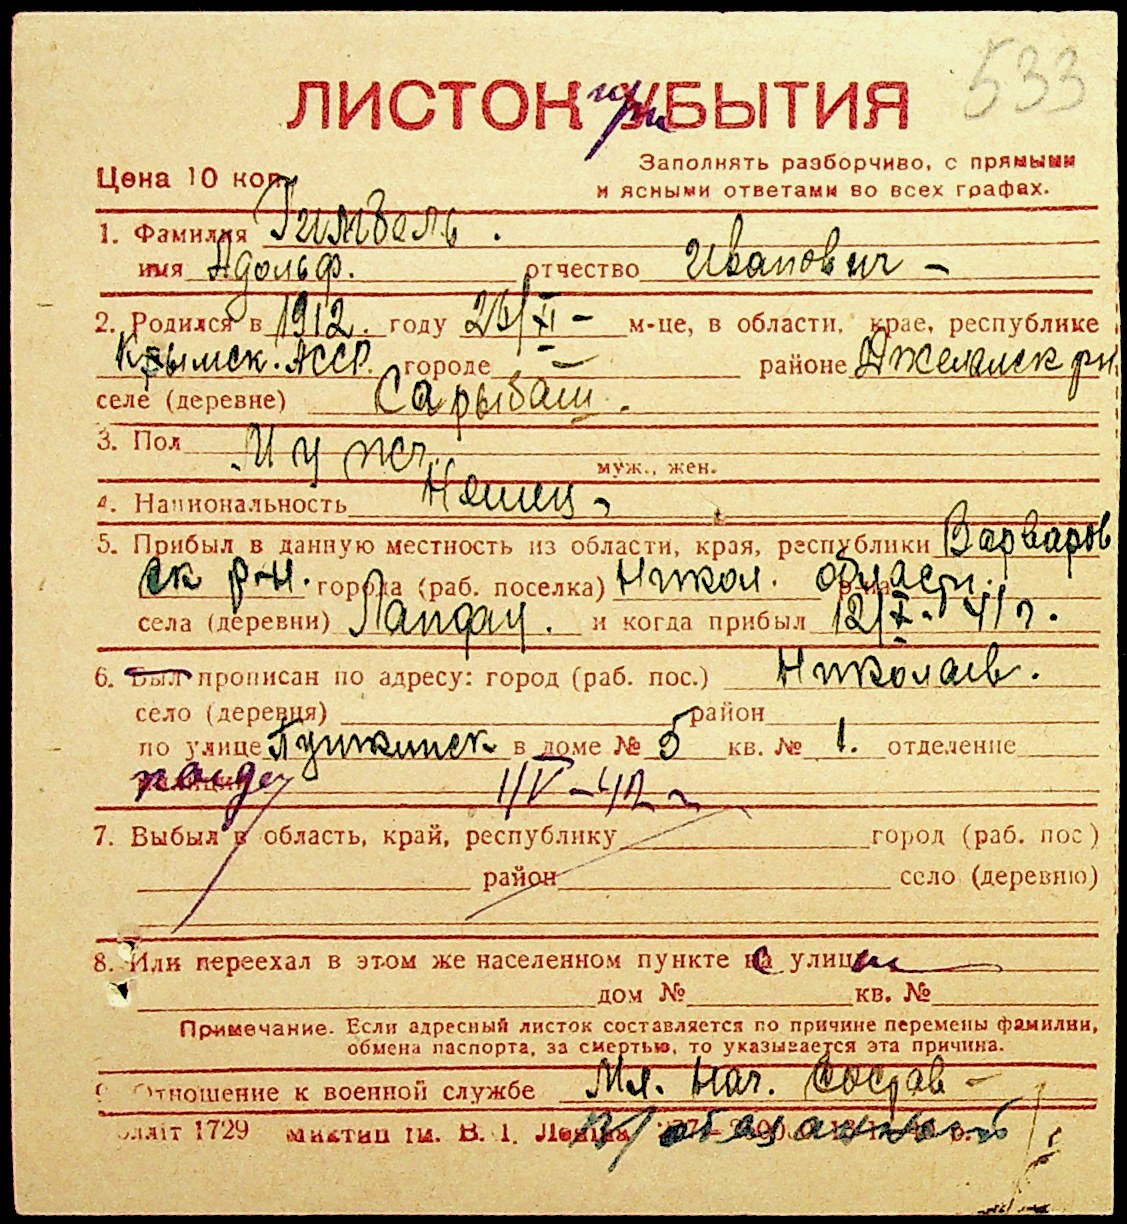 533
ЛИСТОК при УБЫТИЯ
Цена 10 коп.
Заполнять разборчиво, с прямыми
и ясными ответами во всех графах.
1. Фамилия Гимбель.
имя Адольф. отчество Иванович –
2. Родился в 1912. году 26/XII – м-це, в области, крае, республике
Крымск. АССР. городе – районе Джелалск рн.
селе (деревне) Сарыбаш.
3. Пол Муж.
муж., жен.
4. Национальность Немец
5. Прибыл в данную местность из области, края, республики Варваров
ск р-н. города (раб. поселка) Никол. области. р-на
села (деревни) Ландау. и когда прибыл 12/X. 41 г.
6. Был прописан по адресу: город (раб. пос.) Николаев.
село (деревня) район
по улице Пушкинск. в доме № 5 кв. № 1. отделение
милиции 4/V – 42
7. Выбыл в область, край, республику город (раб. пос)
район село (деревню)
8. Или переехал в этом же населенном пункте с улицы
дом № кв. №
Примечание. Если адресный листок составляется по причине перемены фамилии,
обмена паспорта, за смертью, то указывается эта причина.
9. Отношение к военной службе Мл. нач. Состав –
В/обязанный
Облліт 1729 Миктип ім. В. І. Леніна